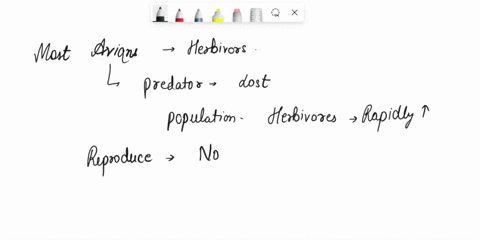 Most Avians → Herbivors.
↳ predator → lost
population. Herbivores → Rapidly ↑
Reproduce → No